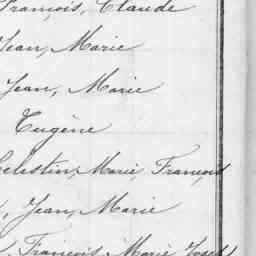 François, Claude
Jean, Marie
Jean, Marie
Eugène
Celestin, Marie, François
, Jean, Marie
, François, Marie, Joseph